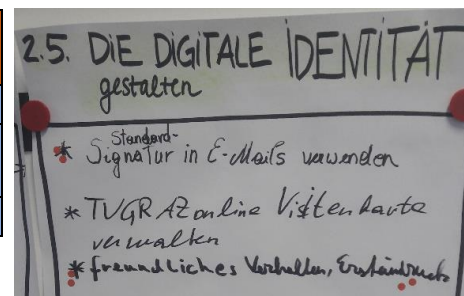 2.5. DIE DIGITALE IDENTITÄT
gestalten
Standard-
* Signatur in E-Mails verwenden
* TUGRAZonline Visitenkarte
verwalten
* freundliches Verhalten, Ersteindruck